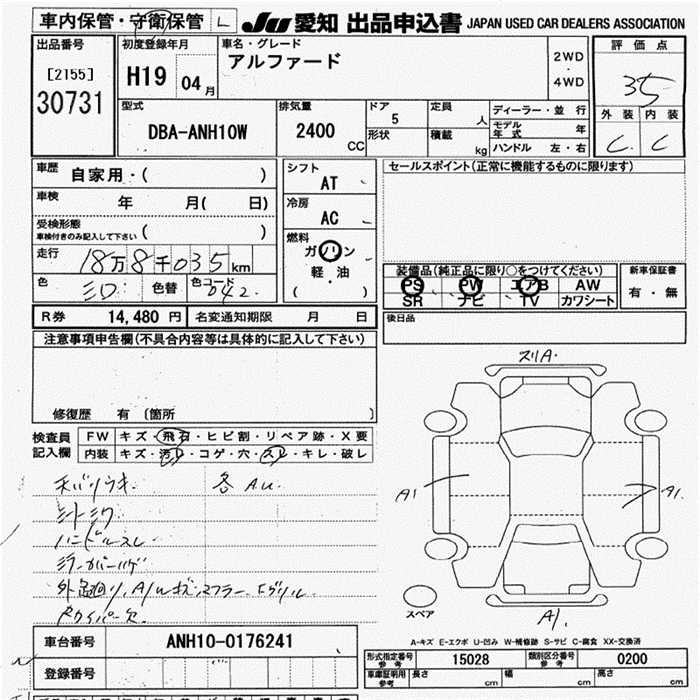 車内保管・守衛保管 L JU 愛知 出品申込書 JAPAN USED CAR DEALERS ASSOCIATION
出品番号 [2155] 30731
初度登録年月 H19 04月
車名・グレード アルファード
2WD・4WD
評価点 35
外装 C 内装 C
型式 DBA-ANH10W
排気量 2400 CC
ドア 5 形状
定員 人 積載 kg
ディーラー・並行
モデル年式 年
ハンドル 左・右
車歴 自家用・( )
車検 年 月( 日)
受検形態 車検付きのみ記入して下さい ( )
走行 18万8千035km
色 色替 色コード 042
シフト AT
冷房 AC
燃料 ガソリン・軽・油 ( )
セールスポイント(正常に機能するものに限ります)
装備品(純正品に限り○をつけてください)
PS PW エアB AW
SR ナビ TV カワシート
新車保証書 有・無
R券 14,480 円 名変通知期限 月 日
後日品
注意事項申告欄(不具合内容等は具体的に記入して下さい)
修復歴 有 〔箇所 〕
検査員記入欄
FW キズ・飛石・ヒビ割・リペア跡・X要
内装 キズ・汚レ・コゲ・穴・スレ・キレ・破レ
各AU.
ハンドルスレ
スリA・
A1
A1.
A1.
スペア
A-キズ E-エクボ U-凹み W-補修跡 S-サビ C-腐食 XX-交換済
車台番号 ANH10-0176241
登録番号
形式指定番号 参考 15028 類別区分番号 参考 0200
車庫証明用 参考 長さ cm 幅 cm 高さ cm